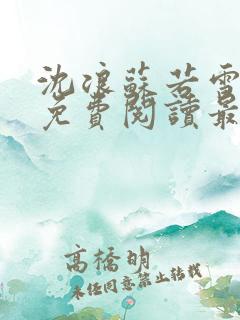 沈浪蘇若雪
免費閱讀最
高橋明
未經同意禁止轉載